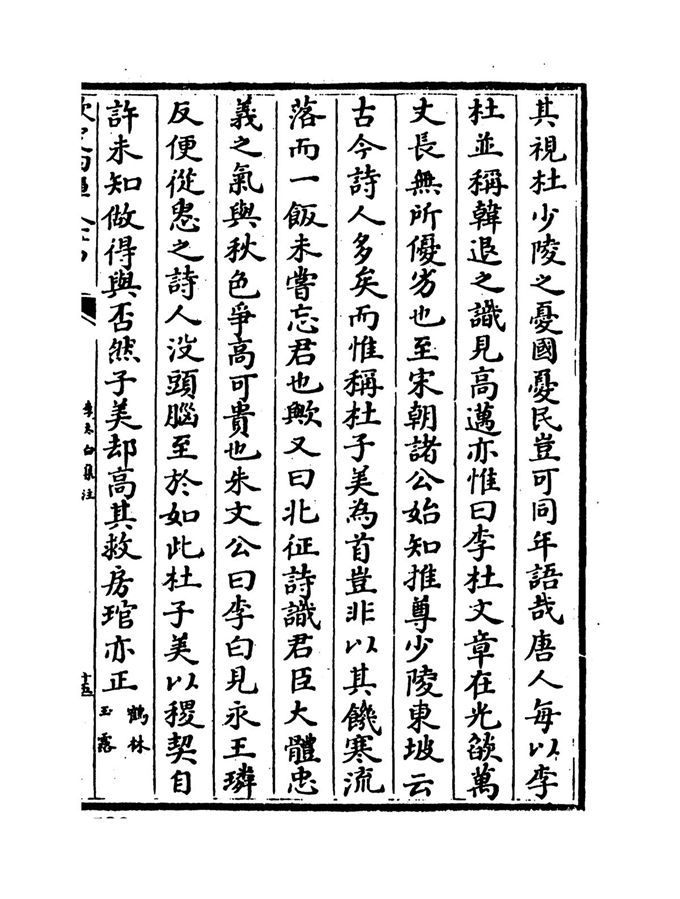 其視杜少陵之憂國憂民豈可同年語哉唐人每以李
杜並稱韓退之識見高邁亦惟曰李杜文章在光燄萬
丈長無所優劣也至宋朝諸公始知推尊少陵東坡云
古今詩人多矣而惟稱杜子美為首豈非以其饑寒流
落而一飯未嘗忘君也歟又曰北征詩識君臣大體忠
義之氣與秋色爭高可貴也朱文公曰李白見永王璘
反便從臾之詩人沒頭腦至於如此杜子美以稷契自
許未知做得與否然子美却高其救房琯亦正
鶴林
玉露
李太白集注
十五